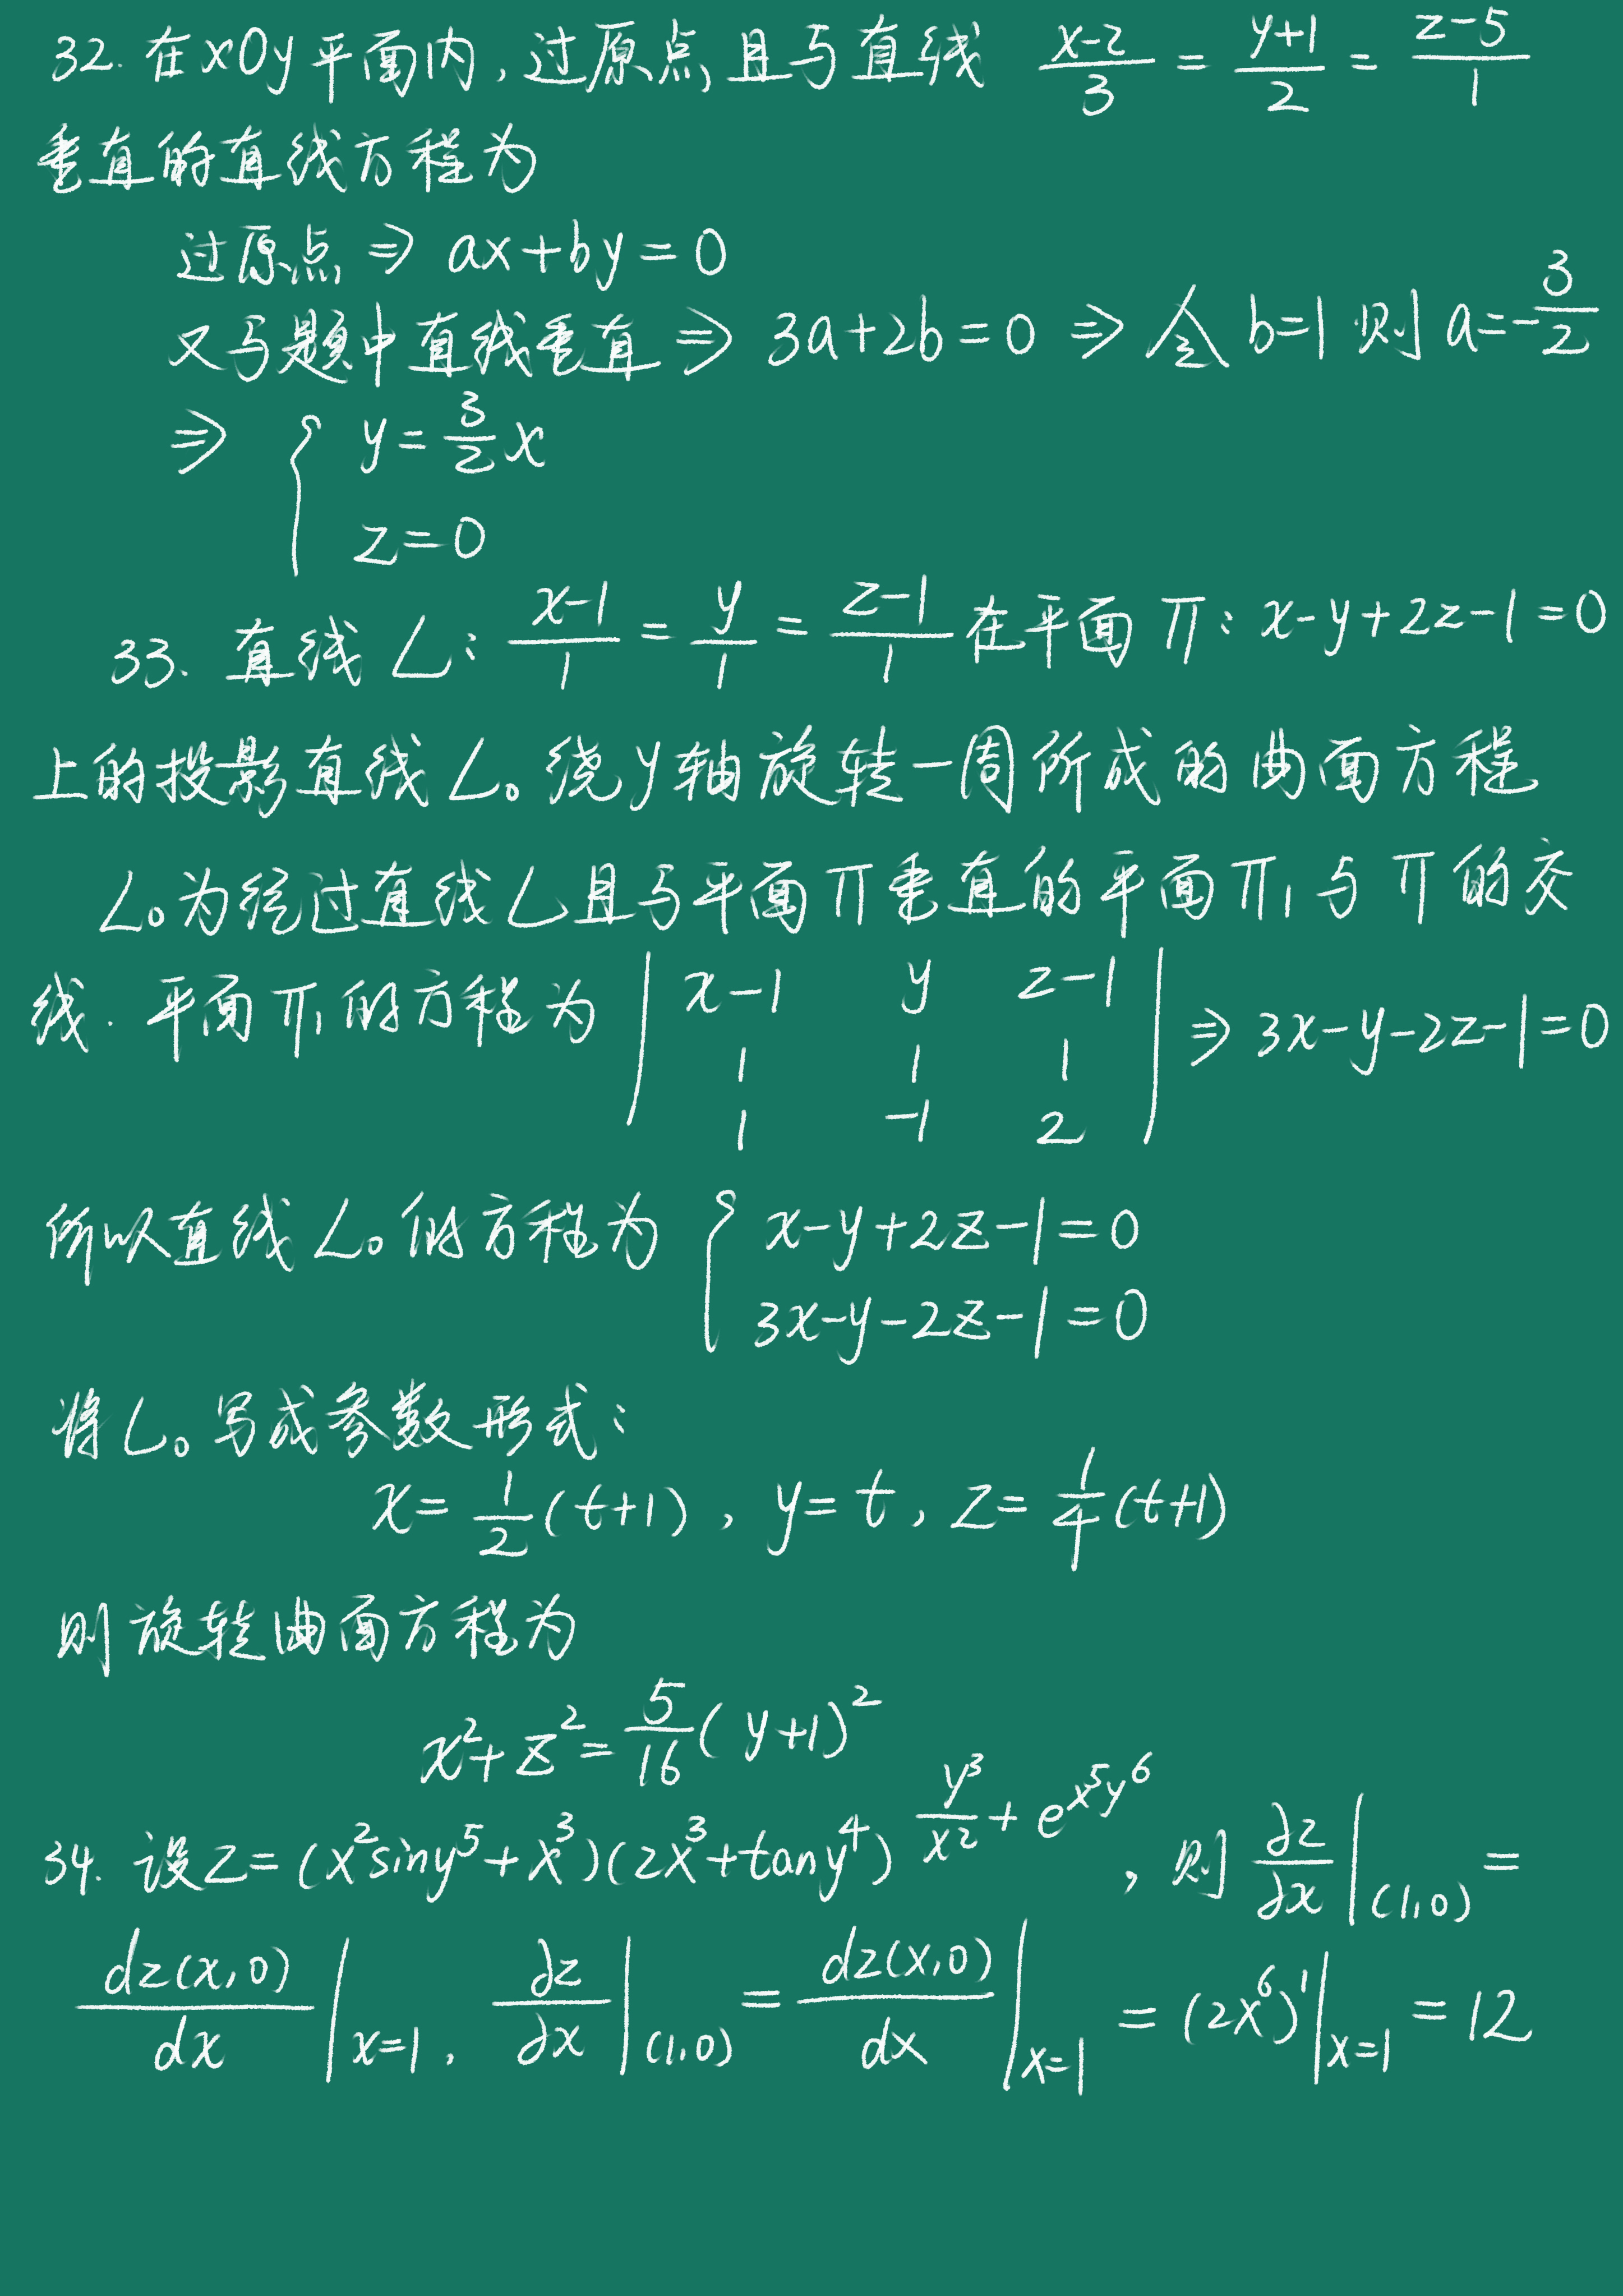 32. 在xOy平面内,过原点且与直线 (x-2)/3 = (y+1)/2 = (z-5)/1
垂直的直线方程为
过原点 ⇒ ax+by=0
又与题中直线垂直 ⇒ 3a+2b=0 ⇒ 令b=1 则 a=-3/2
⇒ { y=3/2 x
z=0
33. 直线 L: (x-1)/1 = y/1 = (z-1)/1 在平面 π: x-y+2z-1=0
上的投影直线L₀绕y轴旋转一周所成的曲面方程
L₀为经过直线L且与平面π垂直的平面π₁与π的交
线. 平面π₁的方程为 | x-1 y z-1 | ⇒ 3x-y-2z-1=0
1 1 1
1 -1 2
所以直线L₀的方程为 { x-y+2z-1=0
3x-y-2z-1=0
将L₀写成参数形式:
x= 1/2(t+1), y=t, z= 1/4(t+1)
则旋转曲面方程为
x²+z²= 5/16(y+1)²
34. 设z=(x²siny⁵+x³)(2x³+tany⁴) y³/x² + e^(x⁵y⁶), 则 ∂z/∂x |(1,0) =
dz(x,0)/dx |x=1, ∂z/∂x |(1,0) = dz(x,0)/dx |x=1 = (2x⁶)' |x=1 = 12